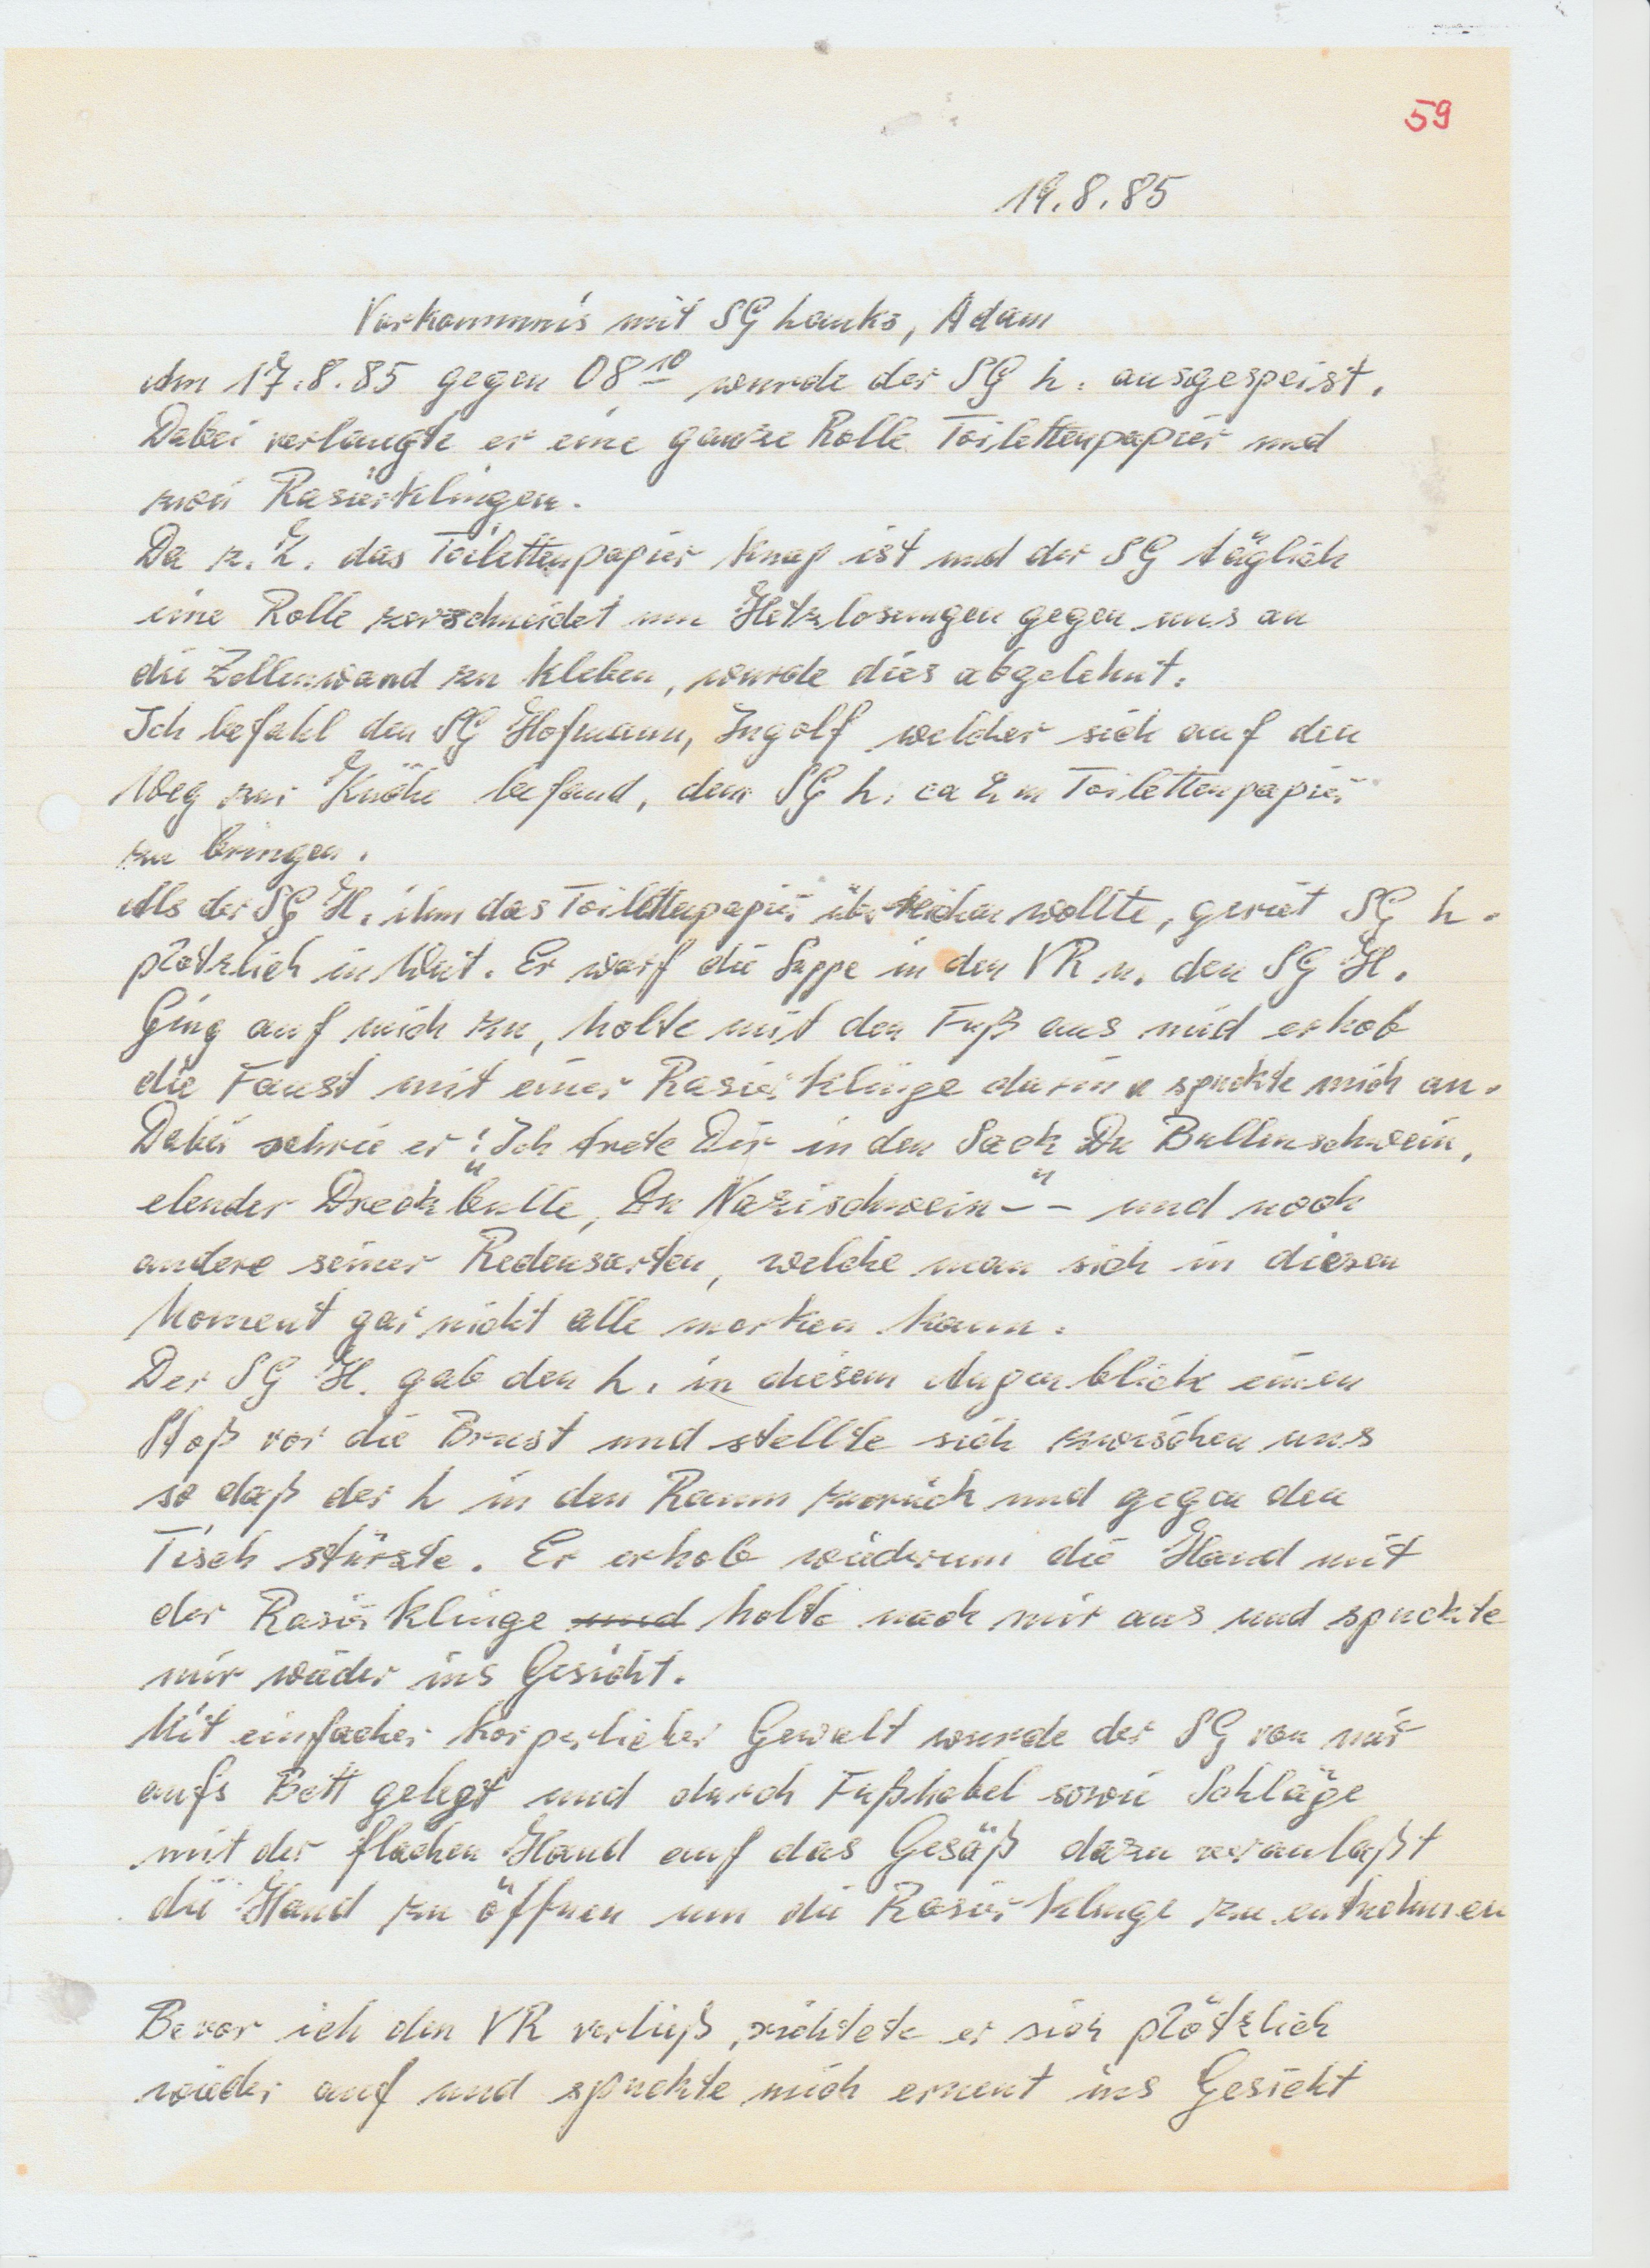 59
19.8.85
Vorkommnis mit SG Lauks, Adam
Am 17.8.85 gegen 08 10 wurde der SG L. ausgespeist.
Dabei verlangte er eine ganze Rolle Toilettenpapier und
zwei Rasierklingen.
Da z. Z. das Toilettenpapier knap ist und der SG täglich
eine Rolle zerschneidet um Hetzlosungen gegen uns an
die Zellenwand zu kleben, wurde dies abgelehnt.
Ich befahl den SG Hofmann, Ingolf welcher sich auf den
Weg zur Küche befand, dem SG L. ca 2 m Toilettenpapier
zu bringen.
Als der SG H. ihm das Toilettenpapier überreichen wollte, geriet SG L.
plötzlich in Wut. Er warf die Suppe in den VR u. den SG H.
Ging auf mich zu, holte mit den Fuß aus und erhob
die Faust mit einer Rasierklinge darin u spukte mich an.
Dabei schrie er: "Ich trete Dir in den Sack Du Bullenschwein,
elender Dreckbulle, Du Nazischwein--" und noch
andere seiner Redensarten, welche man sich in diesen
Moment gar nicht alle merken kann.
Der SG H. gab den L. in diesem Augenblick einen
Stoß vor die Brust und stellte sich zwischen uns
so daß der L in den Raum zurück und gegen den
Tisch stürzte. Er erhob wiederum die Hand mit
der Rasierklinge und holte nach mir aus und spuckte
mir wieder ins Gesicht.
Mit einfacher körperlicher Gewalt wurde der SG von mir
aufs Bett gelegt und durch Fußhebel sowie Schläge
mit der flachen Hand auf das Gesäß dazu veranlaßt
die Hand zu öffnen um die Rasierklinge zu entnehmen
Bevor ich den VR verließ, richtete er sich plötzlich
wieder auf und spukte mich erneut ins Gesicht